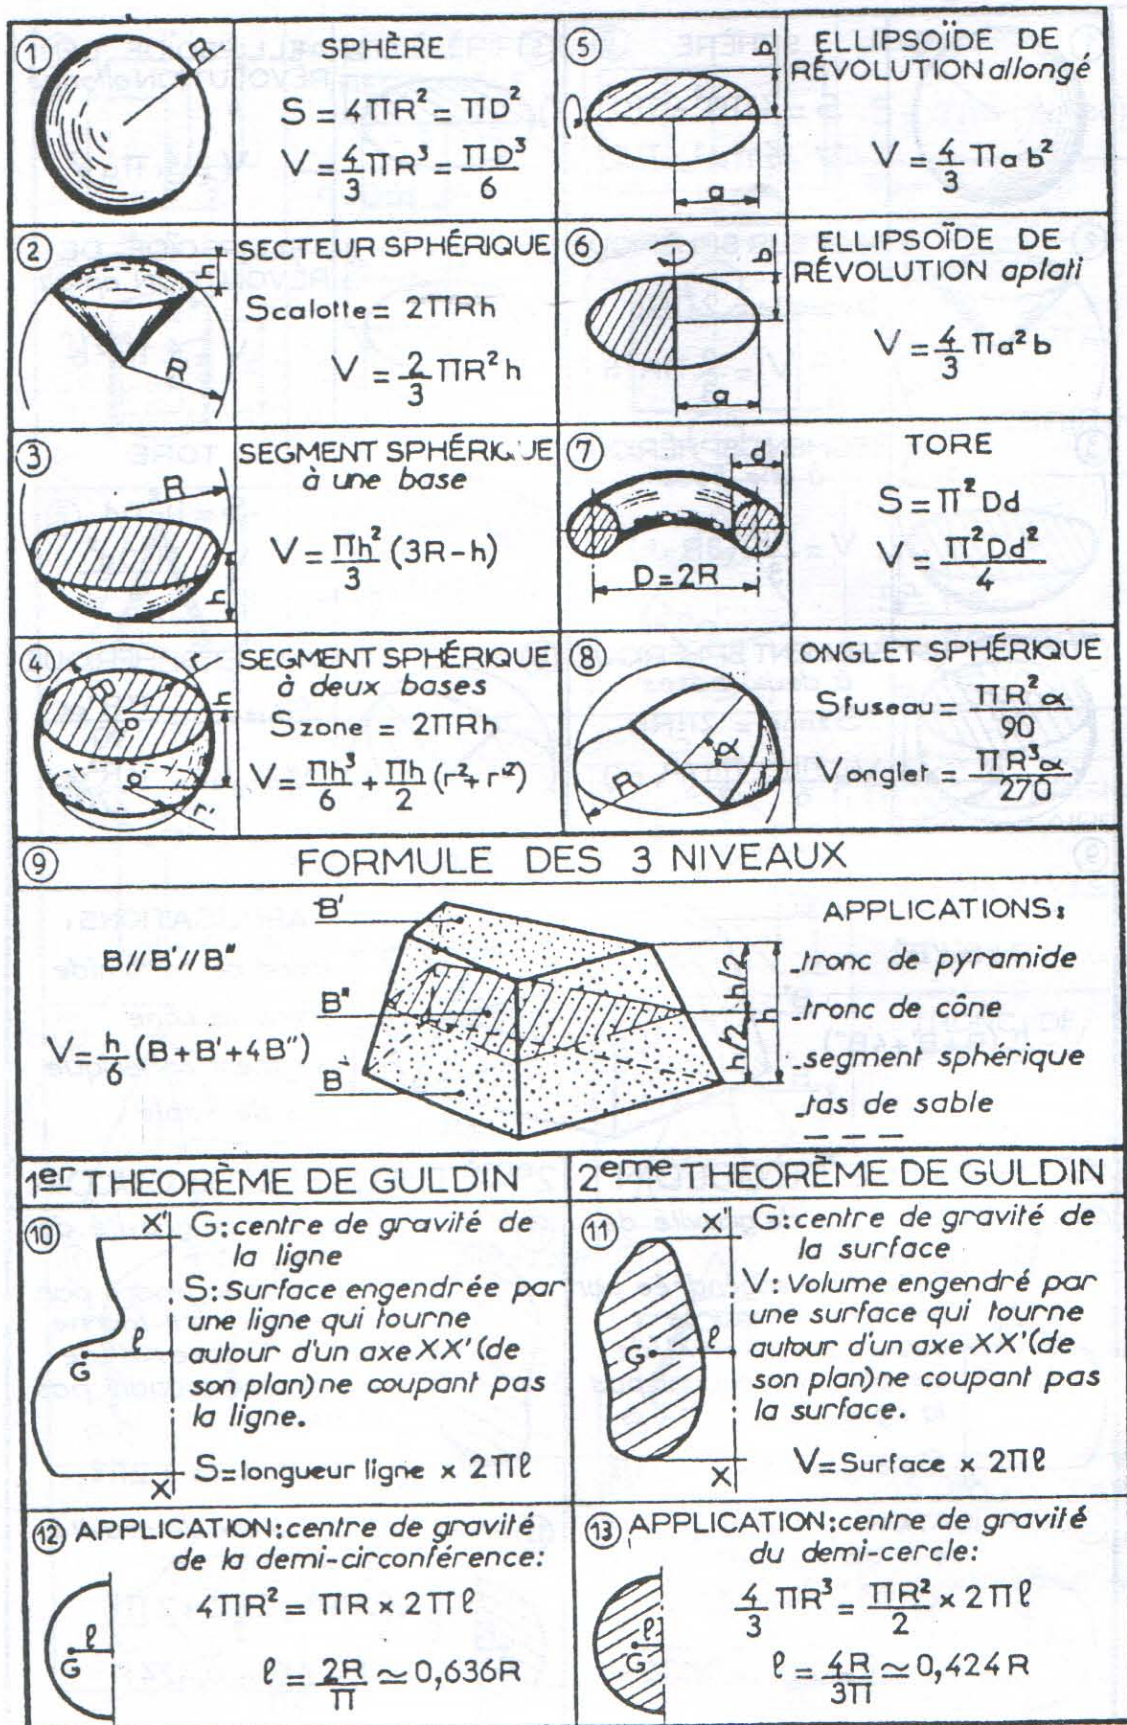 ① R
SPHÈRE
S = 4ΠR² = ΠD²
V = 4/3 ΠR³ = ΠD³/6
② h R
SECTEUR SPHÉRIQUE
Scalotte = 2ΠRh
V = 2/3 ΠR²h
③ R h
SEGMENT SPHÉRIQUE
à une base
V = Πh²/3 (3R-h)
④ R r h o o' r'
SEGMENT SPHÉRIQUE
à deux bases
Szone = 2ΠRh
V = Πh³/6 + Πh/2 (r²+r'²)
⑤ b a
ELLIPSOÏDE DE
RÉVOLUTION allongé
V = 4/3 Πab²
⑥ b a
ELLIPSOÏDE DE
RÉVOLUTION aplati
V = 4/3 Πa²b
⑦ d
D=2R
TORE
S = Π²Dd
V = Π²Dd²/4
⑧ R α
ONGLET SPHÉRIQUE
Sfuseau = ΠR²α/90
Vonglet = ΠR³α/270
⑨ FORMULE DES 3 NIVEAUX
B//B'//B"
V = h/6 (B+B'+4B")
B'
B"
B
h/2 h/2 h
APPLICATIONS:
-tronc de pyramide
-tronc de cône
-segment sphérique
-tas de sable
1er THEORÈME DE GULDIN
⑩ X' G ℓ X
G: centre de gravité de
la ligne
S: Surface engendrée par
une ligne qui tourne
autour d'un axe XX' (de
son plan) ne coupant pas
la ligne.
S=longueur ligne x 2Πℓ
2eme THEORÈME DE GULDIN
⑪ X' G ℓ X
G: centre de gravité de
la surface
V: Volume engendré par
une surface qui tourne
autour d'un axe XX' (de
son plan) ne coupant pas
la surface.
V=Surface x 2Πℓ
⑫ APPLICATION: centre de gravité
de la demi-circonférence:
G ℓ
4ΠR² = ΠR x 2Πℓ
ℓ = 2R/Π ≃ 0,636R
⑬ APPLICATION: centre de gravité
du demi-cercle:
G ℓ
4/3 ΠR³ = ΠR²/2 x 2Πℓ
ℓ = 4R/3Π ≃ 0,424R